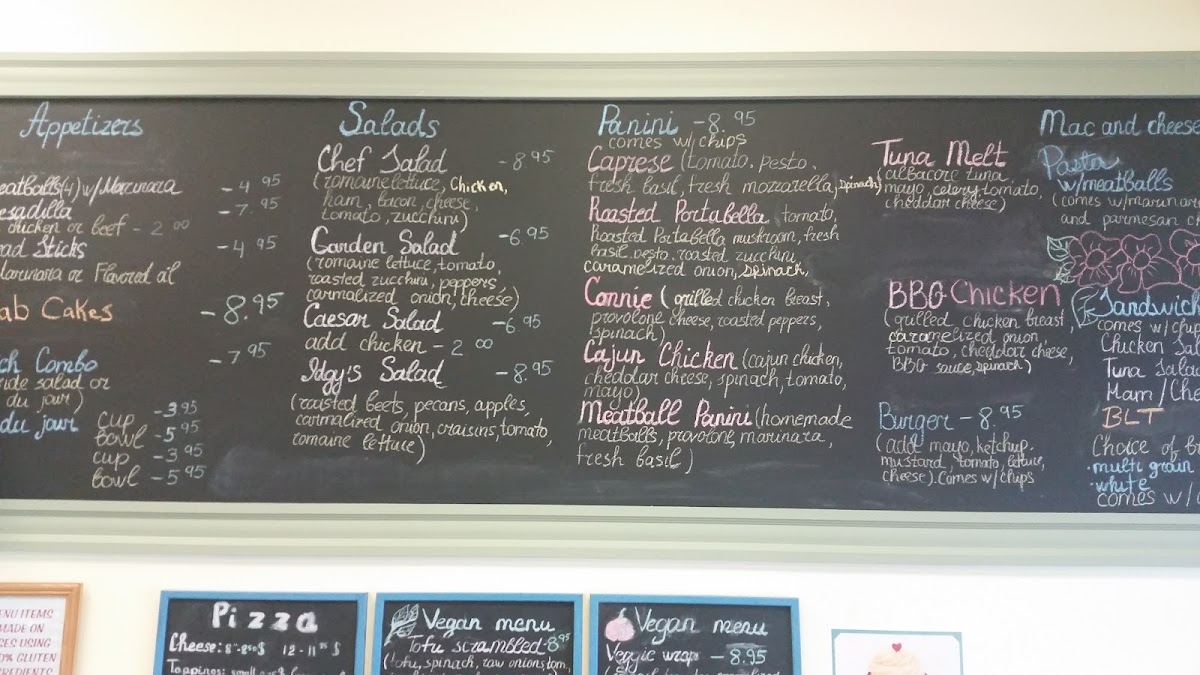 Appetizers
eatballs(4) w/Marinara - 4 95
esadilla - 7.95
chicken or beef - 2 00
ad Sticks - 4 95
arinara or Flavored oil
ab Cakes - 8.95
ch Combo - 7 95
ide salad or
du jour)
du jour cup - 3 95
bowl - 5 95
cup - 3 95
bowl - 5 95
Salads
Chef Salad - 8 95
(romaine lettuce, chicken,
ham, bacon, cheese,
tomato, zucchini)
Garden Salad - 6 95
(romaine lettuce, tomato,
roasted zucchini, peppers,
carmalized onion, cheese)
Caesar Salad - 6 95
add chicken - 2 00
Idgy's Salad - 8.95
(roasted beets, pecans, apples,
carmalized onion, craisins, tomato,
romaine lettuce)
Panini - 8.95
comes w/chips
Caprese (tomato, pesto,
fresh basil, fresh mozzarella, spinach)
Roasted Portabella tomato,
Roasted Portabella mustroom, fresh
basil, pesto, roasted zucchini
caramelized onion, spinach,
Connie (grilled chicken breast,
provolone cheese, roasted peppers,
spinach)
Cajun Chicken (cajun chicken,
cheddar cheese, spinach, tomato,
mayo)
Meatball Panini (homemade
meatballs, provolone, marinara,
fresh basil)
Tuna Melt
(albacore tuna
mayo, celery, tomato,
cheddar cheese)
BBQ Chicken
(grilled chicken breast,
caramelized onion,
tomato, cheddar cheese,
BBQ sauce, spinach)
Burger - 8.95
(add mayo, ketchup.
mustard, tomato, lettuce,
cheese). Comes w/chips
Mac and cheese
Pasta
w/meatballs
(comes w/marinar
and parmesan c
Sandwich
comes w/chi
Chicken Sal
Tuna Salad
Ham/Che
BLT
Choice of br
·multi grain
·white
comes w/c
ENU ITEMS
MADE ON
ES USING
0% GLUTEN
REDIENTS
Pizza
Cheese: 12 - 11
Toppings: small
Vegan menu
Tofu scrambled - 8 95
(tofu, spinach, raw onions, tom,
Vegan menu
Veggie wrap - 8.95